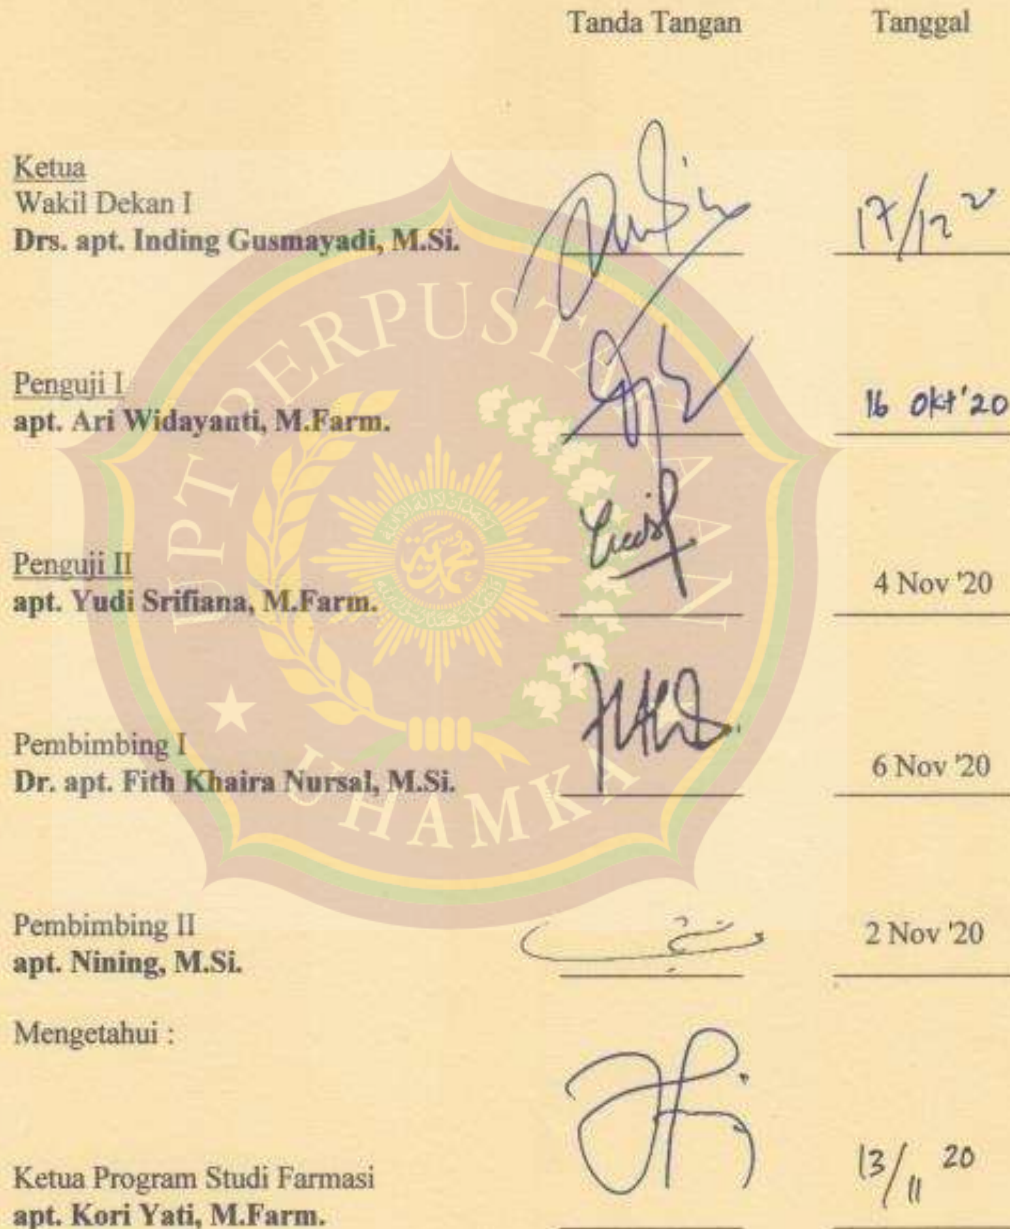 Tanda Tangan Tanggal
Ketua
Wakil Dekan I
Drs. apt. Inding Gusmayadi, M.Si. 17/12 20
Penguji I
apt. Ari Widayanti, M.Farm. 16 Okt'20
Penguji II
apt. Yudi Srifiana, M.Farm. 4 Nov '20
Pembimbing I
Dr. apt. Fith Khaira Nursal, M.Si. 6 Nov '20
Pembimbing II
apt. Nining, M.Si. 2 Nov '20
Mengetahui :
Ketua Program Studi Farmasi
apt. Kori Yati, M.Farm. 13/11 20
UPT PERPUSTAKAAN
UHAMKA